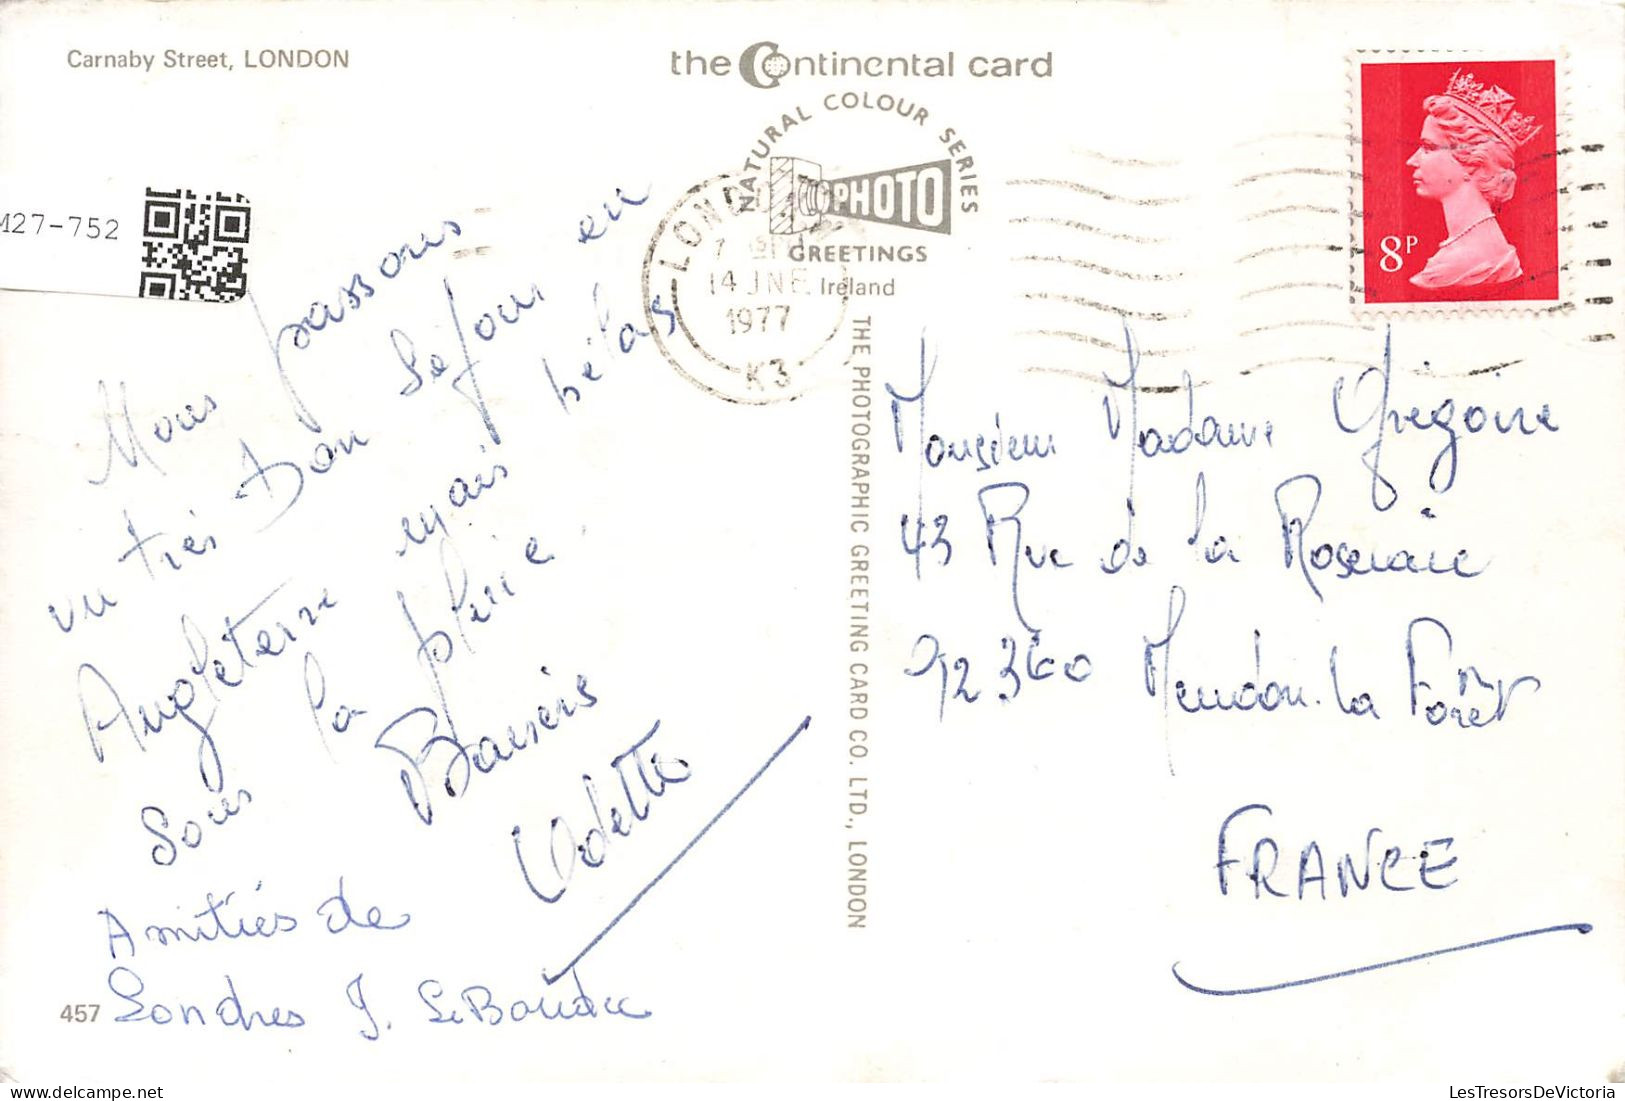 Carnaby Street, LONDON
the Continental card
NATURAL COLOUR SERIES
PHOTO
GREETINGS
Ireland
LONDON
14 JNE
1977
K3
8P
M27-752
Nous passons
un très bon séjour en
Angleterre mais hélas
sous la pluie.
Baisers
Odette
Amitiés de
Londres J.
457
THE PHOTOGRAPHIC GREETING CARD CO. LTD., LONDON
Monsieur Madame Grégoire
43 Rue de la Roseraie
92360 Meudon-la Forêt
FRANCE
delcampe.net
LesTresorsDeVictoria